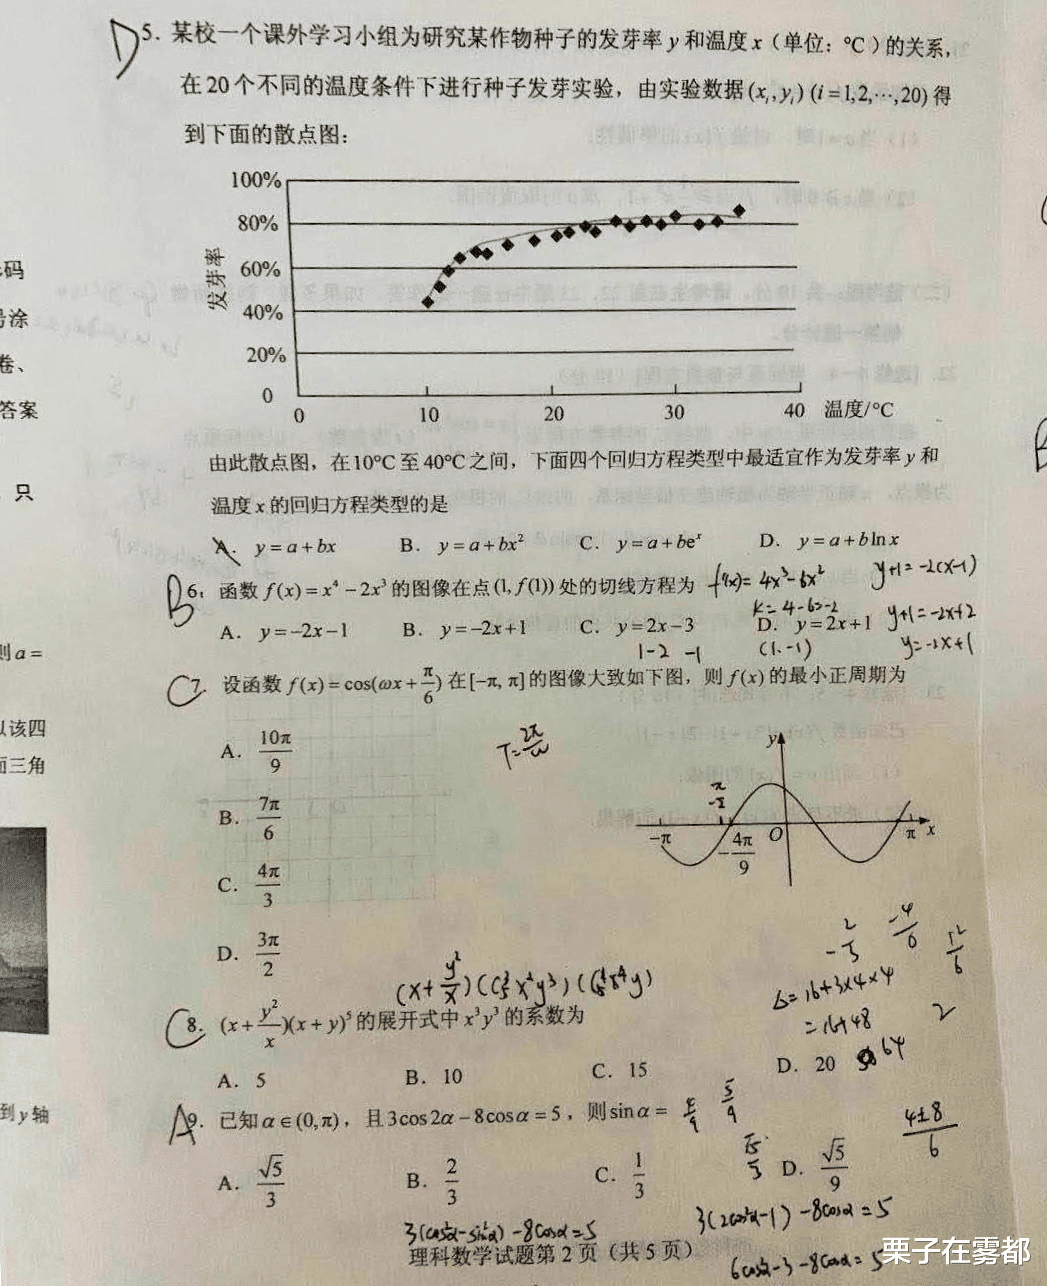 D 5. 某校一个课外学习小组为研究某作物种子的发芽率 y 和温度 x（单位：°C）的关系,
在20个不同的温度条件下进行种子发芽实验，由实验数据(xᵢ,yᵢ) (i=1,2,⋯,20) 得
到下面的散点图：
100%
80%
60%
40%
20%
0
发芽率
0 10 20 30 40 温度/°C
由此散点图，在10°C 至 40°C 之间，下面四个回归方程类型中最适宜作为发芽率 y 和
温度 x 的回归方程类型的是
A. y=a+bx B. y=a+bx² C. y=a+beˣ D. y=a+b ln x
B 6. 函数 f(x)=x⁴−2x³ 的图像在点(1, f(1)) 处的切线方程为 f'(x)=4x³−6x² y+1=-2(x-1)
k=4-6=-2 y+1=-2x+2
A. y=−2x−1 B. y=−2x+1 C. y=2x−3 D. y=2x+1
1-2 -1 (1,-1) y=-2x+1
C 7. 设函数 f(x)=cos(ωx+π/6) 在[−π, π]的图像大致如下图，则 f(x) 的最小正周期为
A. 10π/9
T=2π/ω
B. 7π/6
C. 4π/3
D. 3π/2
y
−π −4π/9 O π x
-2/3 -4/6 12/6
(x+y²/x)
Δ=16+3×4×4
=16+48 2
64
C 8. (x+y²/x)(x+y)⁵ 的展开式中 x³y³ 的系数为
A. 5 B. 10 C. 15 D. 20
A 9. 已知α∈(0,π)，且3cos2α−8cosα=5，则sinα= 5/9
4±8/6
√5/3
A. √5/3 B. 2/3 C. 1/3 D. √5/9
3(cos²α-sin²α)-8cosα=5 3(2cos²α-1)-8cosα=5
理科数学试题第 2 页（共 5 页）
6cos²α-3-8cosα=5
码
号涂
卷、
答案
只
则 a =
以该四
面三角
到 y 轴
栗子在雾都